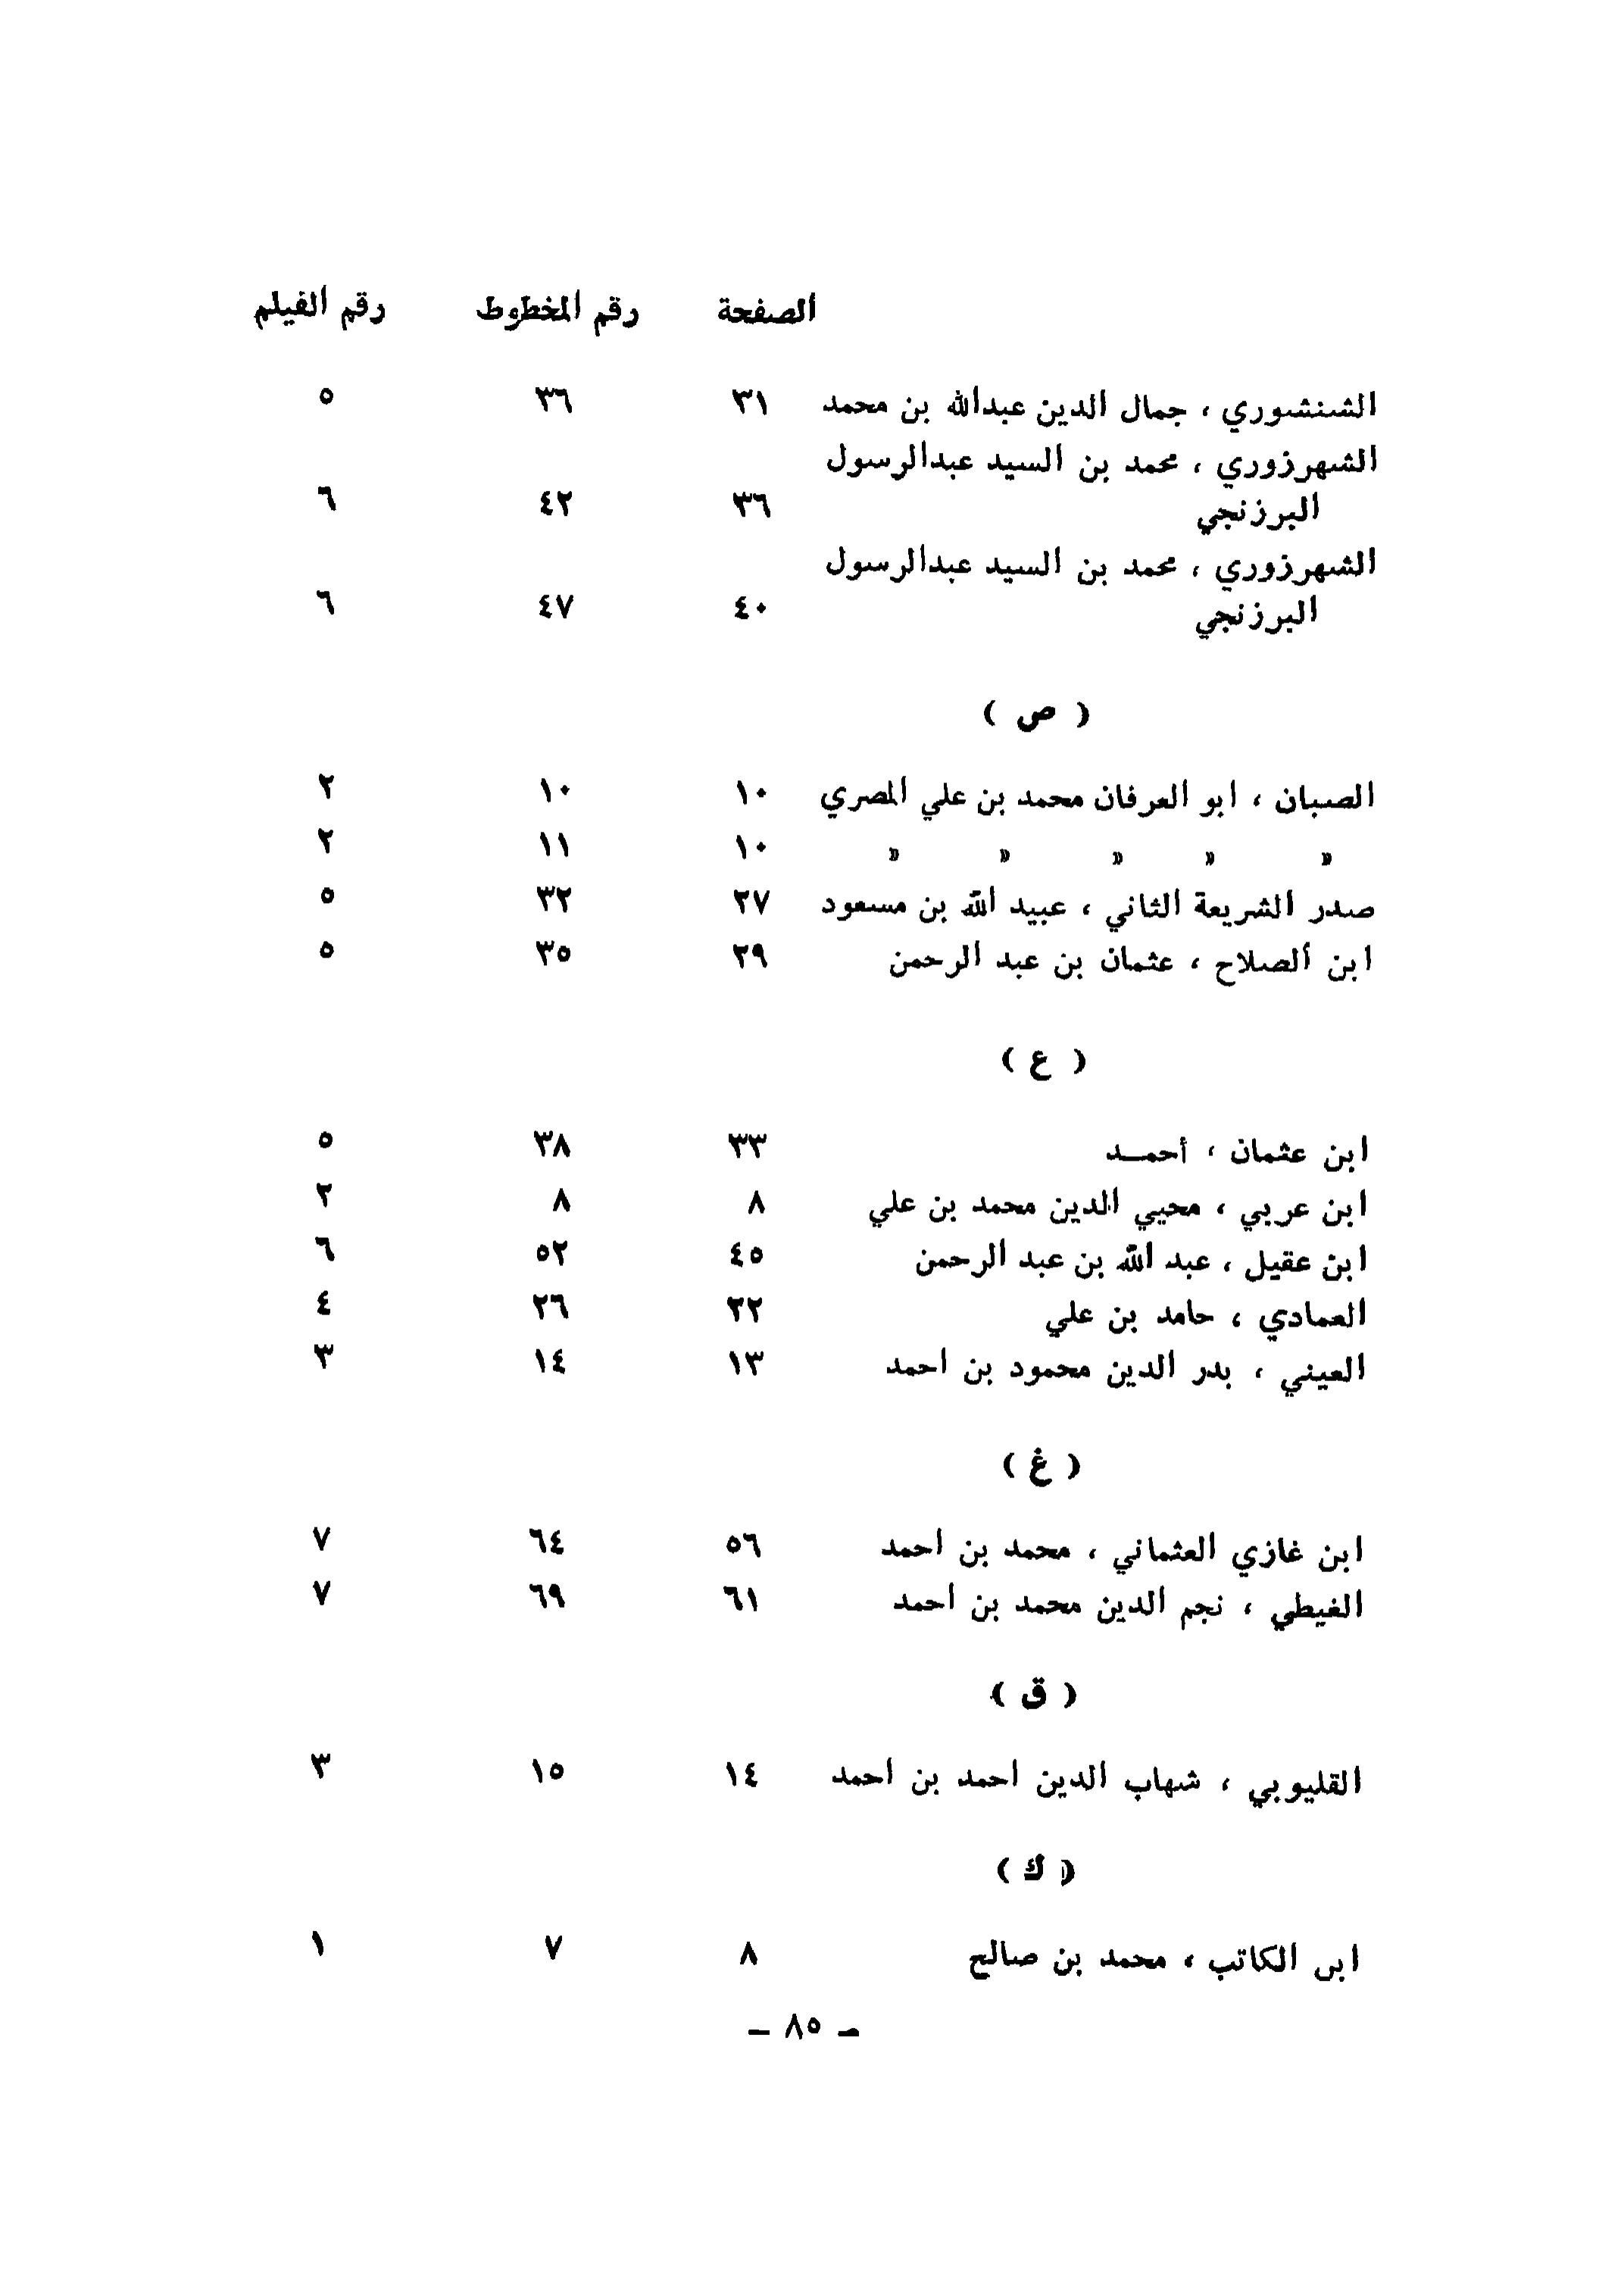 الصفحة رقم المخطوط رقم الفيلم
الشنشوري ، جمال الدين عبدالله بن محمد ٣١ ٣٦ ٥
الشهرزوري ، محمد بن السيد عبدالرسول
البرزنجي ٣٦ ٤٢ ٦
الشهرزوري ، محمد بن السيد عبدالرسول
البرزنجي ٤٠ ٤٧ ٦
( ص )
الصبان ، ابو العرفان محمد بن علي المصري ١٠ ١٠ ٢
» » » » » ١٠ ١١ ٢
صدر الشريعة الثاني ، عبيد الله بن مسعود ٢٧ ٣٢ ٥
ابن الصلاح ، عثمان بن عبد الرحمن ٢٩ ٣٥ ٥
( ع )
ابن عثمان ، أحمــد ٣٣ ٣٨ ٥
ابن عربي ، محيي الدين محمد بن علي ٨ ٨ ٢
ابن عقيل ، عبد الله بن عبد الرحمن ٤٥ ٥٢ ٦
العمادي ، حامد بن علي ٢٢ ٢٦ ٤
العيني ، بدر الدين محمود بن احمد ١٣ ١٤ ٣
( غ )
ابن غازي العثماني ، محمد بن احمد ٥٦ ٦٤ ٧
الغيطي ، نجم الدين محمد بن احمد ٦١ ٦٩ ٧
( ق )
القليوبي ، شهاب الدين احمد بن احمد ١٤ ١٥ ٣
( ك )
ابن الكاتب ، محمد بن صالح ٨ ٧ ١
ـ ٨٥ ـ